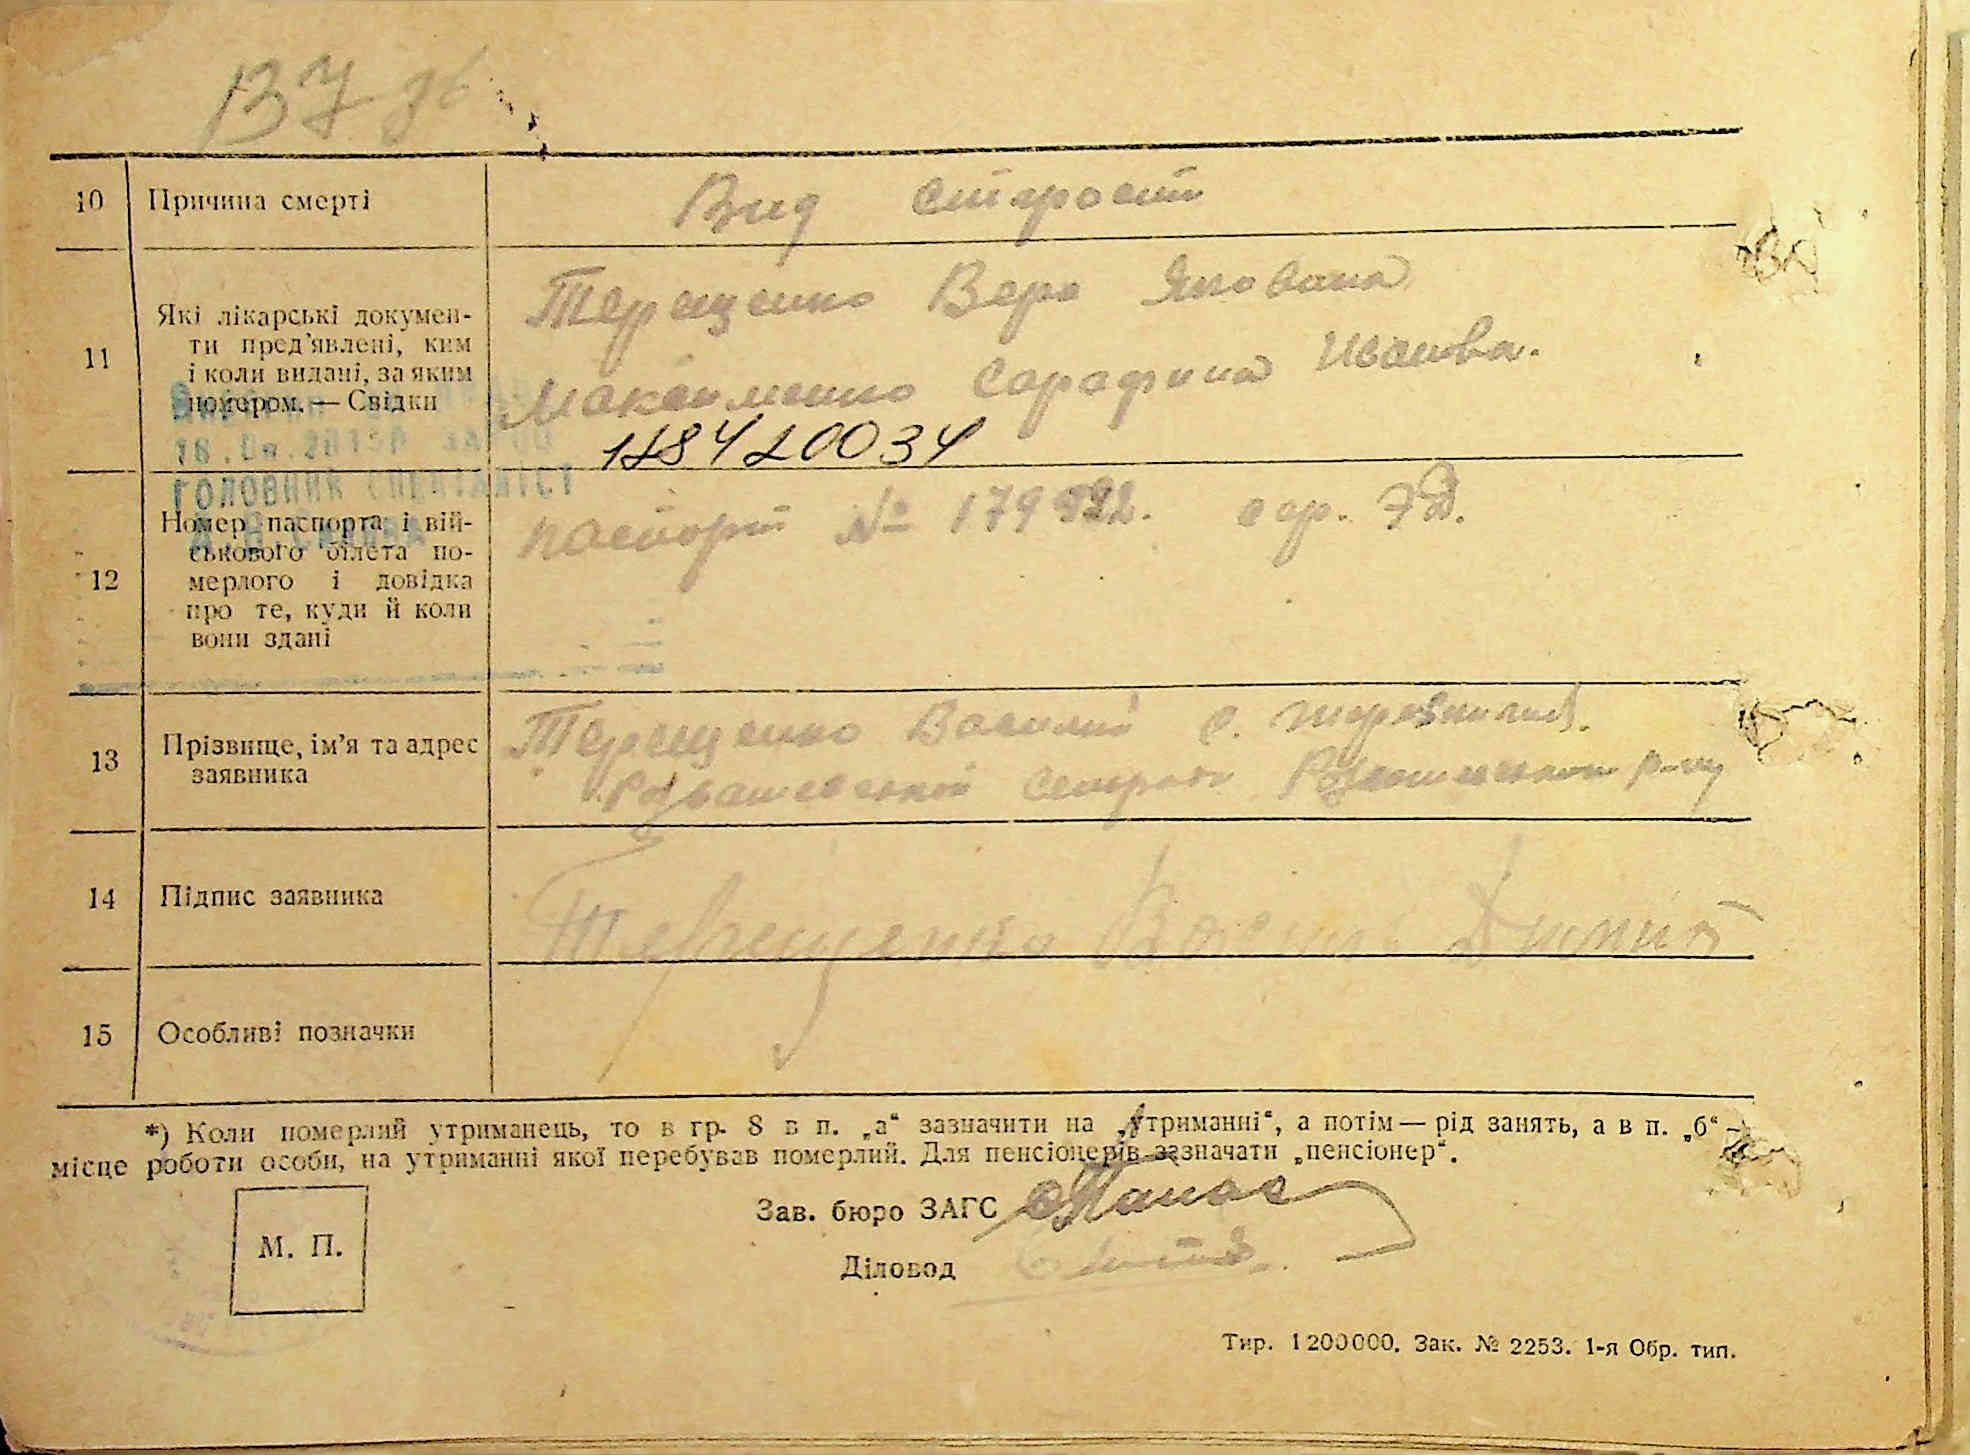 137 зв
10 Причина смерті Вид старости
11 Які лікарські докумен-
ти пред'явлені, ким
і коли видані, за яким
номером. — Свідки
Терещенко Вера Яковлна
Максименко Сарафина Иванвн.
128420034
ГОЛОВНИЙ СПЕЦІАЛІСТ
12 Номер паспорта і вій-
ськового білета по-
мерлого і довідка
про те, куди й коли
вони здані
паспорт № сер. ЭД.
13 Прізвище, ім'я та адрес
заявника
Терещенко Василий с.
14 Підпис заявника Терещенко Василь
15 Особливі позначки
*) Коли померлий утриманець, то в гр. 8 в п. „а“ зазначити на „утриманні“, а потім — рід занять, а в п. „б“ —
місце роботи особи, на утриманні якої перебував померлий. Для пенсіонерів зазначати „пенсіонер“.
Зав. бюро ЗАГС
М. П.
Діловод
Тир. 1200000. Зак. № 2253. 1-я Обр. тип.